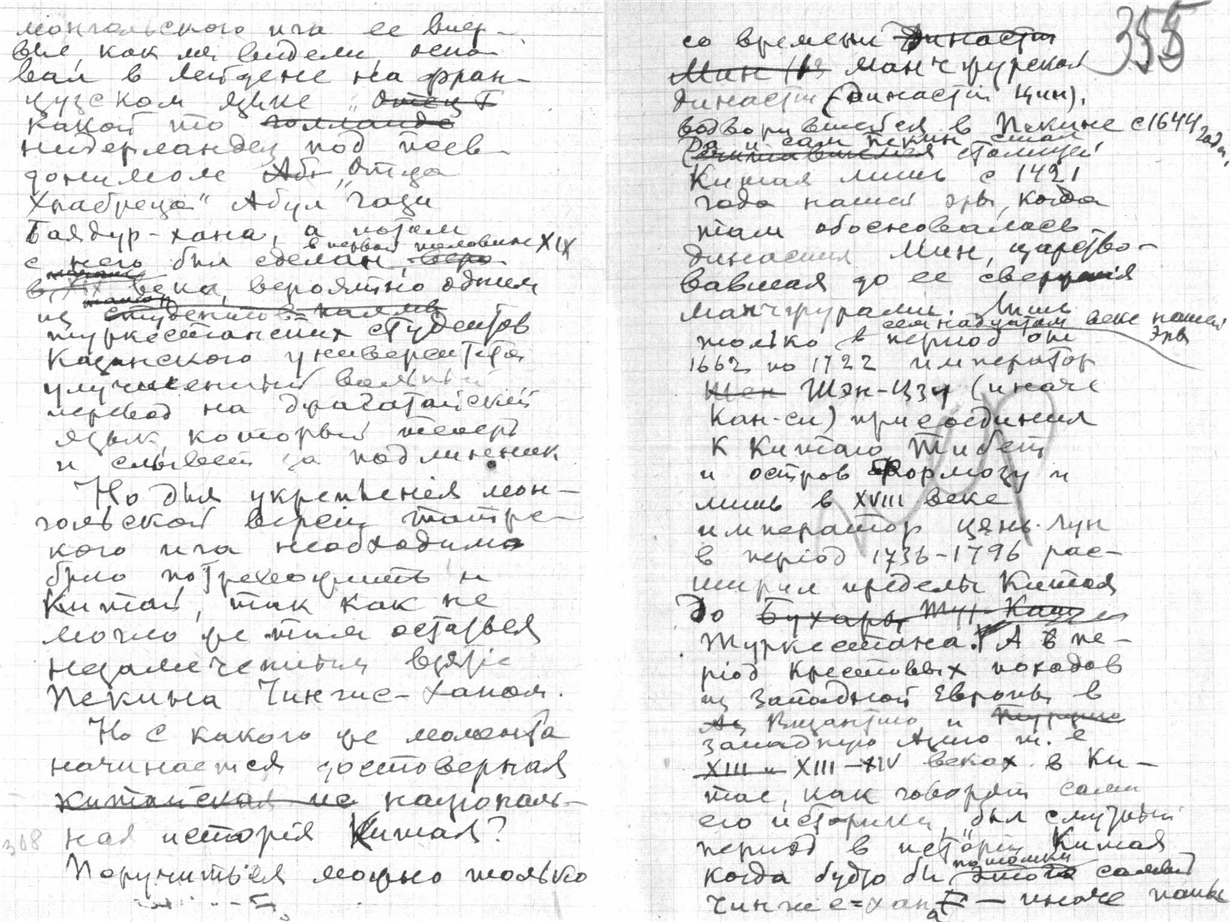 монгольского ига ее впер-
вые, как мы видели, осно-
вал в Лейдене на фран-
цузском языке "Отец Г
какой то голланде
нидерландец под псев-
донимом Абт "Отца
Храбреца" Абул Гази
Баядур-хана, а потом
с него был сделан, в первой половине XIX
века, вероятно одним
из
туркестанских студентов
Казанского университета
улучшенный вольный
перевод на Джагатайский
язык который теперь
и слывет за подлинник
Но для укрепления мон-
гольской версии татрс-
кого ига необходимо
было потревожить и
Китай, так как не
могло же там остаться
незамеченным взятiе
Пекина Чингис-ханом.
Но с какого же момента
начинается достоверная
китайская не националь-
ная исторiя Китая?
308
Поручиться можно только
355
со времени династии
Мин (1 Манчжурской
династiи (династiи Цин),
водворившейся в Пекине с 1644 года,
Да и сам Пекин стал
столицей
Китая лишь с 1421
года нашей эры, когда
там обосновалась
династия Мин, царство-
вавшая до ее свержения
манчжурами. Лишь
только в семнадцатом веке нашей эры
в перiод от
1662 по 1722 император
Шен Шэн-Цзу (иначе
Кан-си) присоединил
к Китаю Тибет
и остров Формозу и
лишь в XVIII веке
император Цянь-Лун
в перiод 1736-1796 рас-
ширил пределы Китая
до Бухары Тур. Каш
Туркестана. А в пе-
рiод Крестовых походов
из Западной Европы в
Византию и
западную Азию т. е
XIII и XIII-XIV веках в Ки-
тае, как говорят сами
его историки, был смутный
перiод в исторiи Китая
когда будто бы потомки самый
Чингис=хана — иначе папы